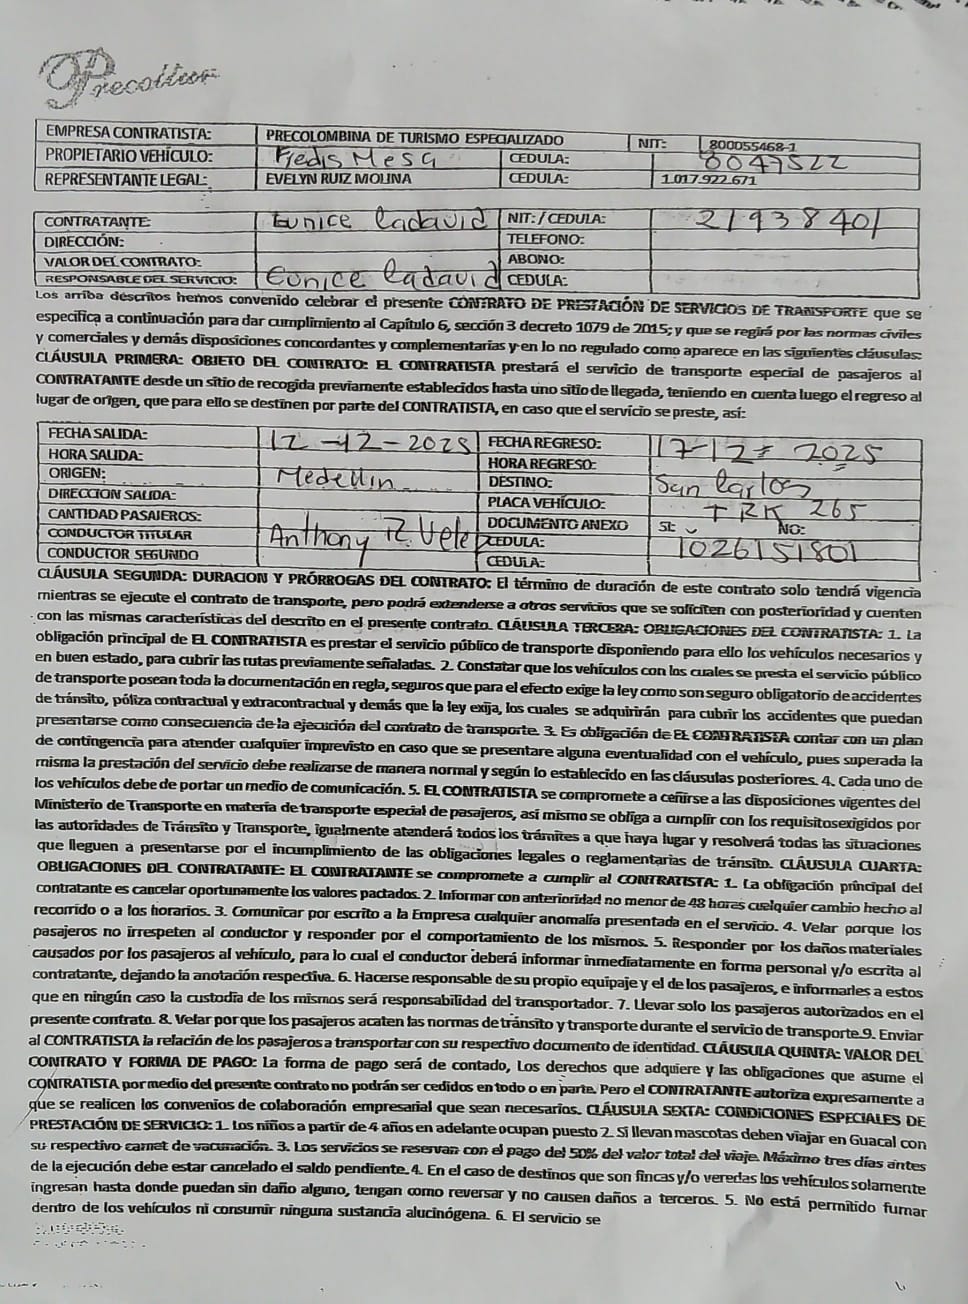 Precoltur
EMPRESA CONTRATISTA: PRECOLOMBINA DE TURISMO ESPECIALIZADO NIT: 800055468-1
PROPIETARIO VEHÍCULO: Fredis Mesa CEDULA: 8047522
REPRESENTANTE LEGAL: EVELYN RUIZ MOLINA CEDULA: 1.017.922.671
CONTRATANTE: Eunice Cadavid NIT: / CEDULA: 21938401
DIRECCIÓN: TELEFONO:
VALOR DEL CONTRATO: ABONO:
RESPONSABLE DEL SERVICIO: Eunice Cadavid CEDULA:
Los arriba descritos hemos convenido celebrar el presente CONTRATO DE PRESTACIÓN DE SERVICIOS DE TRANSPORTE que se
especifica a continuación para dar cumplimiento al Capítulo 6, sección 3 decreto 1079 de 2015; y que se regirá por las normas civiles
y comerciales y demás disposiciones concordantes y complementarias y en lo no regulado como aparece en las siguientes cláusulas:
CLÁUSULA PRIMERA: OBJETO DEL CONTRATO: EL CONTRATISTA prestará el servicio de transporte especial de pasajeros al
CONTRATANTE desde un sitio de recogida previamente establecidos hasta uno sitio de llegada, teniendo en cuenta luego el regreso al
lugar de origen, que para ello se destinen por parte del CONTRATISTA, en caso que el servicio se preste, así:
FECHA SALIDA: 12-12-2025 FECHA REGRESO: 17-12-2025
HORA SALIDA: HORA REGRESO:
ORIGEN: Medellin DESTINO: San Carlos
DIRECCION SALIDA: PLACA VEHÍCULO: TRK 265
CANTIDAD PASAJEROS: DOCUMENTO ANEXO SI: NO:
CONDUCTOR TITULAR Anthony R. Velez CEDULA: 1026151801
CONDUCTOR SEGUNDO CEDULA:
CLÁUSULA SEGUNDA: DURACION Y PRÓRROGAS DEL CONTRATO: El término de duración de este contrato solo tendrá vigencia
mientras se ejecute el contrato de transporte, pero podrá extenderse a otros servicios que se soliciten con posterioridad y cuenten
con las mismas características del descrito en el presente contrato. CLÁUSULA TERCERA: OBLIGACIONES DEL CONTRATISTA: 1. La
obligación principal de EL CONTRATISTA es prestar el servicio público de transporte disponiendo para ello los vehículos necesarios y
en buen estado, para cubrir las rutas previamente señaladas. 2. Constatar que los vehículos con los cuales se presta el servicio público
de transporte posean toda la documentación en regla, seguros que para el efecto exige la ley como son seguro obligatorio de accidentes
de tránsito, póliza contractual y extracontractual y demás que la ley exija, los cuales se adquirirán para cubrir los accidentes que puedan
presentarse como consecuencia de la ejecución del contrato de transporte. 3. Es obligación de EL CONTRATISTA contar con un plan
de contingencia para atender cualquier imprevisto en caso que se presentare alguna eventualidad con el vehículo, pues superada la
misma la prestación del servicio debe realizarse de manera normal y según lo establecido en las cláusulas posteriores. 4. Cada uno de
los vehículos debe de portar un medio de comunicación. 5. EL CONTRATISTA se compromete a ceñirse a las disposiciones vigentes del
Ministerio de Transporte en materia de transporte especial de pasajeros, así mismo se obliga a cumplir con los requisitosexigidos por
las autoridades de Tránsito y Transporte, igualmente atenderá todos los trámites a que haya lugar y resolverá todas las situaciones
que lleguen a presentarse por el incumplimiento de las obligaciones legales o reglamentarias de tránsito. CLÁUSULA CUARTA:
OBLIGACIONES DEL CONTRATANTE: EL CONTRATANTE se compromete a cumplir al CONTRATISTA: 1. La obligación principal del
contratante es cancelar oportunamente los valores pactados. 2. Informar con anterioridad no menor de 48 horas cualquier cambio hecho al
recorrido o a los horarios. 3. Comunicar por escrito a la Empresa cualquier anomalía presentada en el servicio. 4. Velar porque los
pasajeros no irrespeten al conductor y responder por el comportamiento de los mismos. 5. Responder por los daños materiales
causados por los pasajeros al vehículo, para lo cual el conductor deberá informar inmediatamente en forma personal y/o escrita al
contratante, dejando la anotación respectiva. 6. Hacerse responsable de su propio equipaje y el de los pasajeros, e informarles a estos
que en ningún caso la custodia de los mismos será responsabilidad del transportador. 7. Llevar solo los pasajeros autorizados en el
presente contrato. 8. Velar por que los pasajeros acaten las normas de tránsito y transporte durante el servicio de transporte.9. Enviar
al CONTRATISTA la relación de los pasajeros a transportar con su respectivo documento de identidad. CLÁUSULA QUINTA: VALOR DEL
CONTRATO Y FORMA DE PAGO: La forma de pago será de contado, Los derechos que adquiere y las obligaciones que asume el
CONTRATISTA por medio del presente contrato no podrán ser cedidos en todo o en parte. Pero el CONTRATANTE autoriza expresamente a
que se realicen los convenios de colaboración empresarial que sean necesarios. CLÁUSULA SEXTA: CONDICIONES ESPECIALES DE
PRESTACIÓN DE SERVICIO: 1. Los niños a partir de 4 años en adelante ocupan puesto 2. Si llevan mascotas deben viajar en Guacal con
su respectivo carnet de vacunación. 3. Los servicios se reservan con el pago del 50% del valor total del viaje. Máximo tres días antes
de la ejecución debe estar cancelado el saldo pendiente. 4. En el caso de destinos que son fincas y/o veredas los vehículos solamente
ingresan hasta donde puedan sin daño alguno, tengan como reversar y no causen daños a terceros. 5. No está permitido fumar
dentro de los vehículos ni consumir ninguna sustancia alucinógena. 6. El servicio se